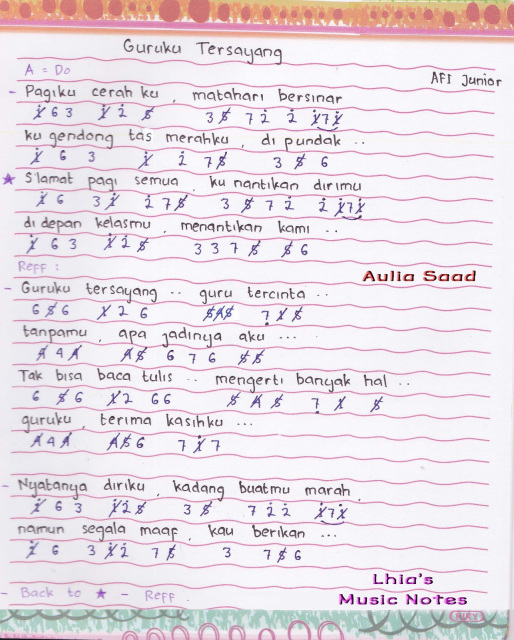 Guruku Tersayang
A = Do
AFI Junior
- Pagiku cerah ku, matahari bersinar
1̸̇ 6 3 1̸̇ 2̇ 5̸ 3 5̸ 7 2̇ 2̇ 1̸̇ 7 1̸̇
ku gendong tas merahku, di pundak ..
1̸̇ 6 3 1̸̇ 2̇ 7 5̸ 3 5̸ 6
★ S'lamat pagi semua, ku nantikan dirimu
1̸̇ 6 3 1̸̇ 2̇ 7 5̸ 3 5̸ 7 2̇ 2̇ 1̸̇ 7 1̸̇
di depan kelasmu, menantikan kami ..
1̸̇ 6 3 1̸̇ 2̇ 5̸ 3 3 7 5̸ 5̸ 6
Reff :
Aulia Saad
- Guruku tersayang .. guru tercinta ..
6 5̸ 6 1̸ 2 6 5̸ 4̸ 5̸ 7̣ 1̸ 5̸
tanpamu, apa jadinya aku ...
4̸ 4 4̸ 4̸ 5̸ 6 7 6 5̸ 5̸
Tak bisa baca tulis .. mengerti banyak hal ..
6 5̸ 6 1̸ 2 6 6 5̸ 4̸ 5̸ 7̣ 1̸ 5̸
guruku, terima kasihku ...
4̸ 4 4̸ 4̸ 5̸ 6 7 1̸̇ 7
- Nyatanya diriku, kadang buatmu marah,
1̸̇ 6 3 1̸̇ 2̇ 5̸ 3 5̸ 7 2̇ 2̇ 1̸̇ 7 1̸̇
namun segala maaf, kau berikan ...
1̸̇ 6 3 1̸̇ 2̇ 7 5̸ 3 7 5̸ 6
Lhia's
- Back to ★ - Reff.
Music Notes